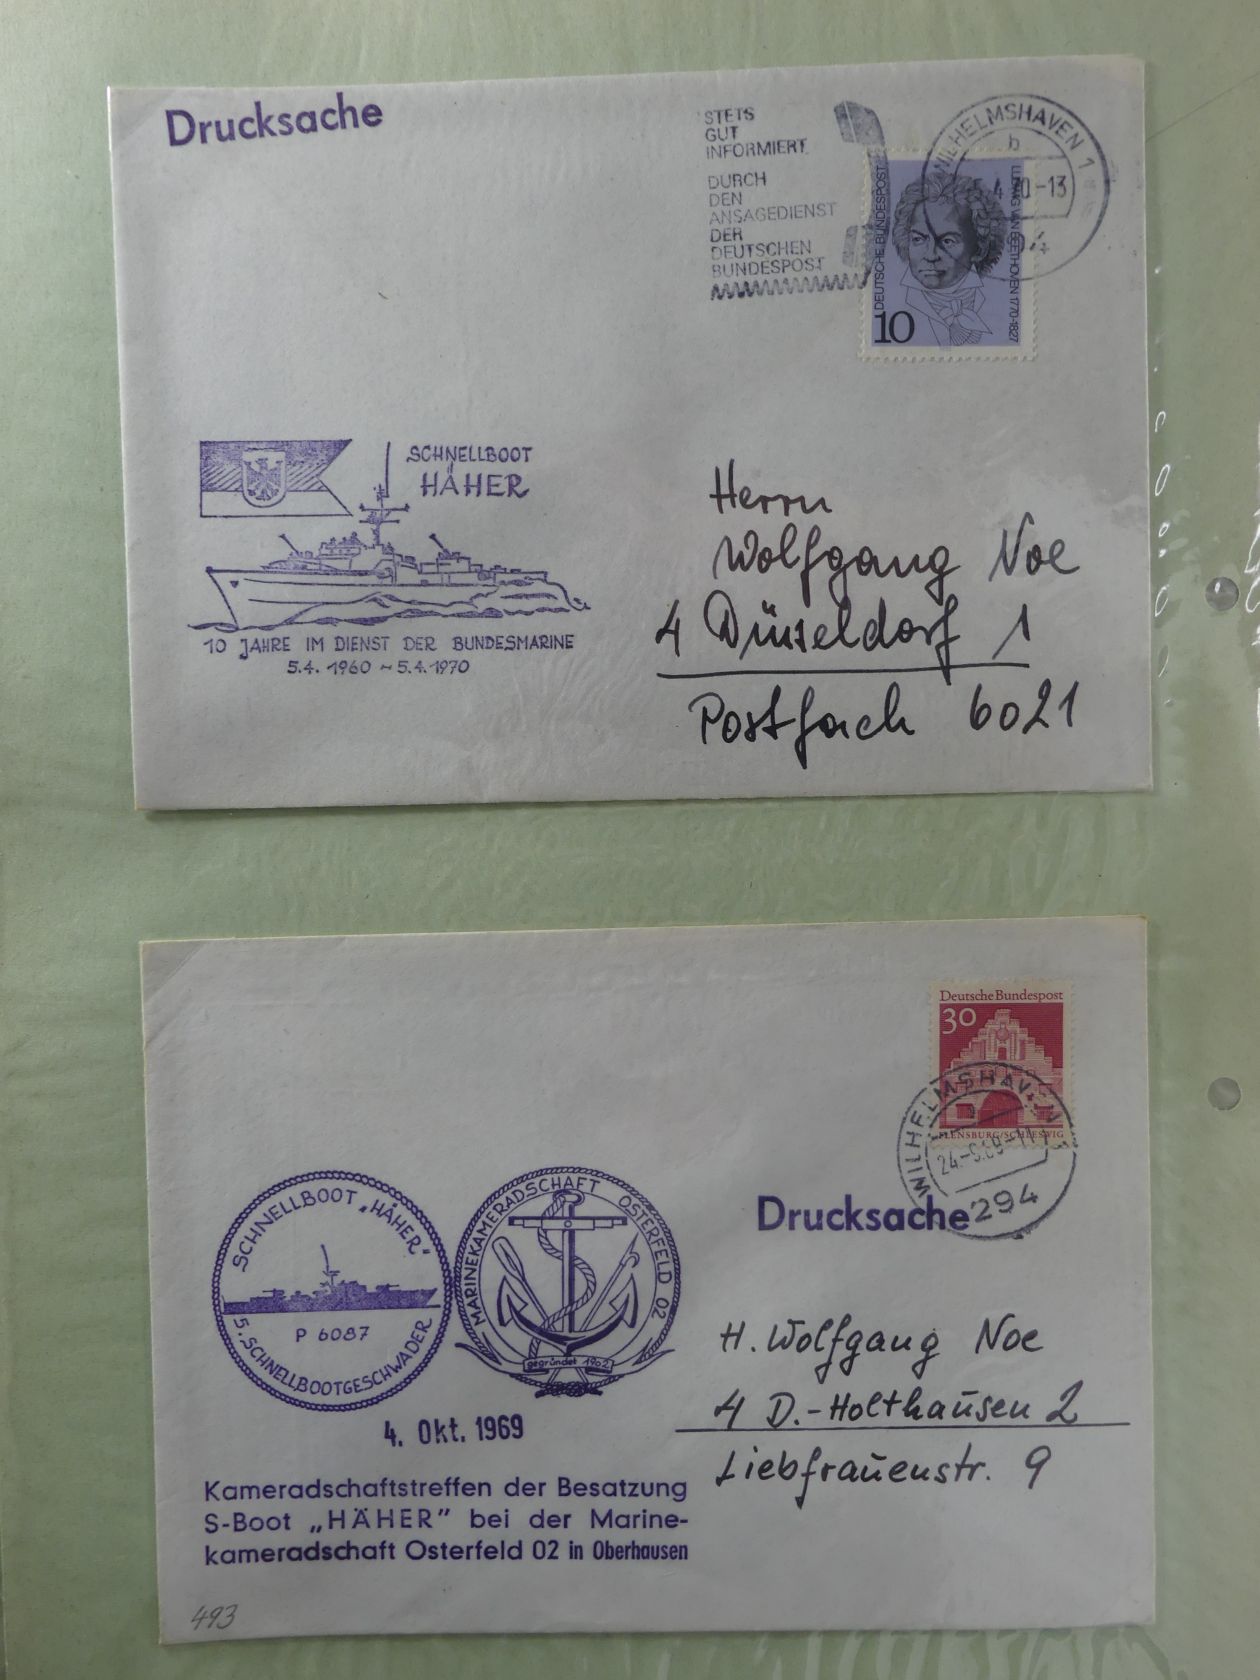 Drucksache
STETS
GUT
INFORMIERT
DURCH
DEN
ANSAGEDIENST
DER
DEUTSCHEN
BUNDESPOST
WILHELMSHAVEN 1
b
5.4.70-13
DEUTSCHE BUNDESPOST
LUDWIG VAN BEETHOVEN 1770-1827
10
SCHNELLBOOT
HÄHER
10 JAHRE IM DIENST DER BUNDESMARINE
5.4.1960 ~ 5.4.1970
Herrn
Wolfgang Noe
4 Düsseldorf 1
Postfach 6021
Deutsche Bundespost
30
FLENSBURG/SCHLESWIG
WILHELMSHAVEN
294
Drucksache
SCHNELLBOOT „HÄHER"
P 6087
5. SCHNELLBOOTGESCHWADER
MARINEKAMERADSCHAFT OSTERFELD 02
gegründet 1902
4. Okt. 1969
Kameradschaftstreffen der Besatzung
S-Boot „HÄHER" bei der Marine-
kameradschaft Osterfeld 02 in Oberhausen
H. Wolfgang Noe
4 D.-Holthausen 2
Liebfrauenstr. 9
493